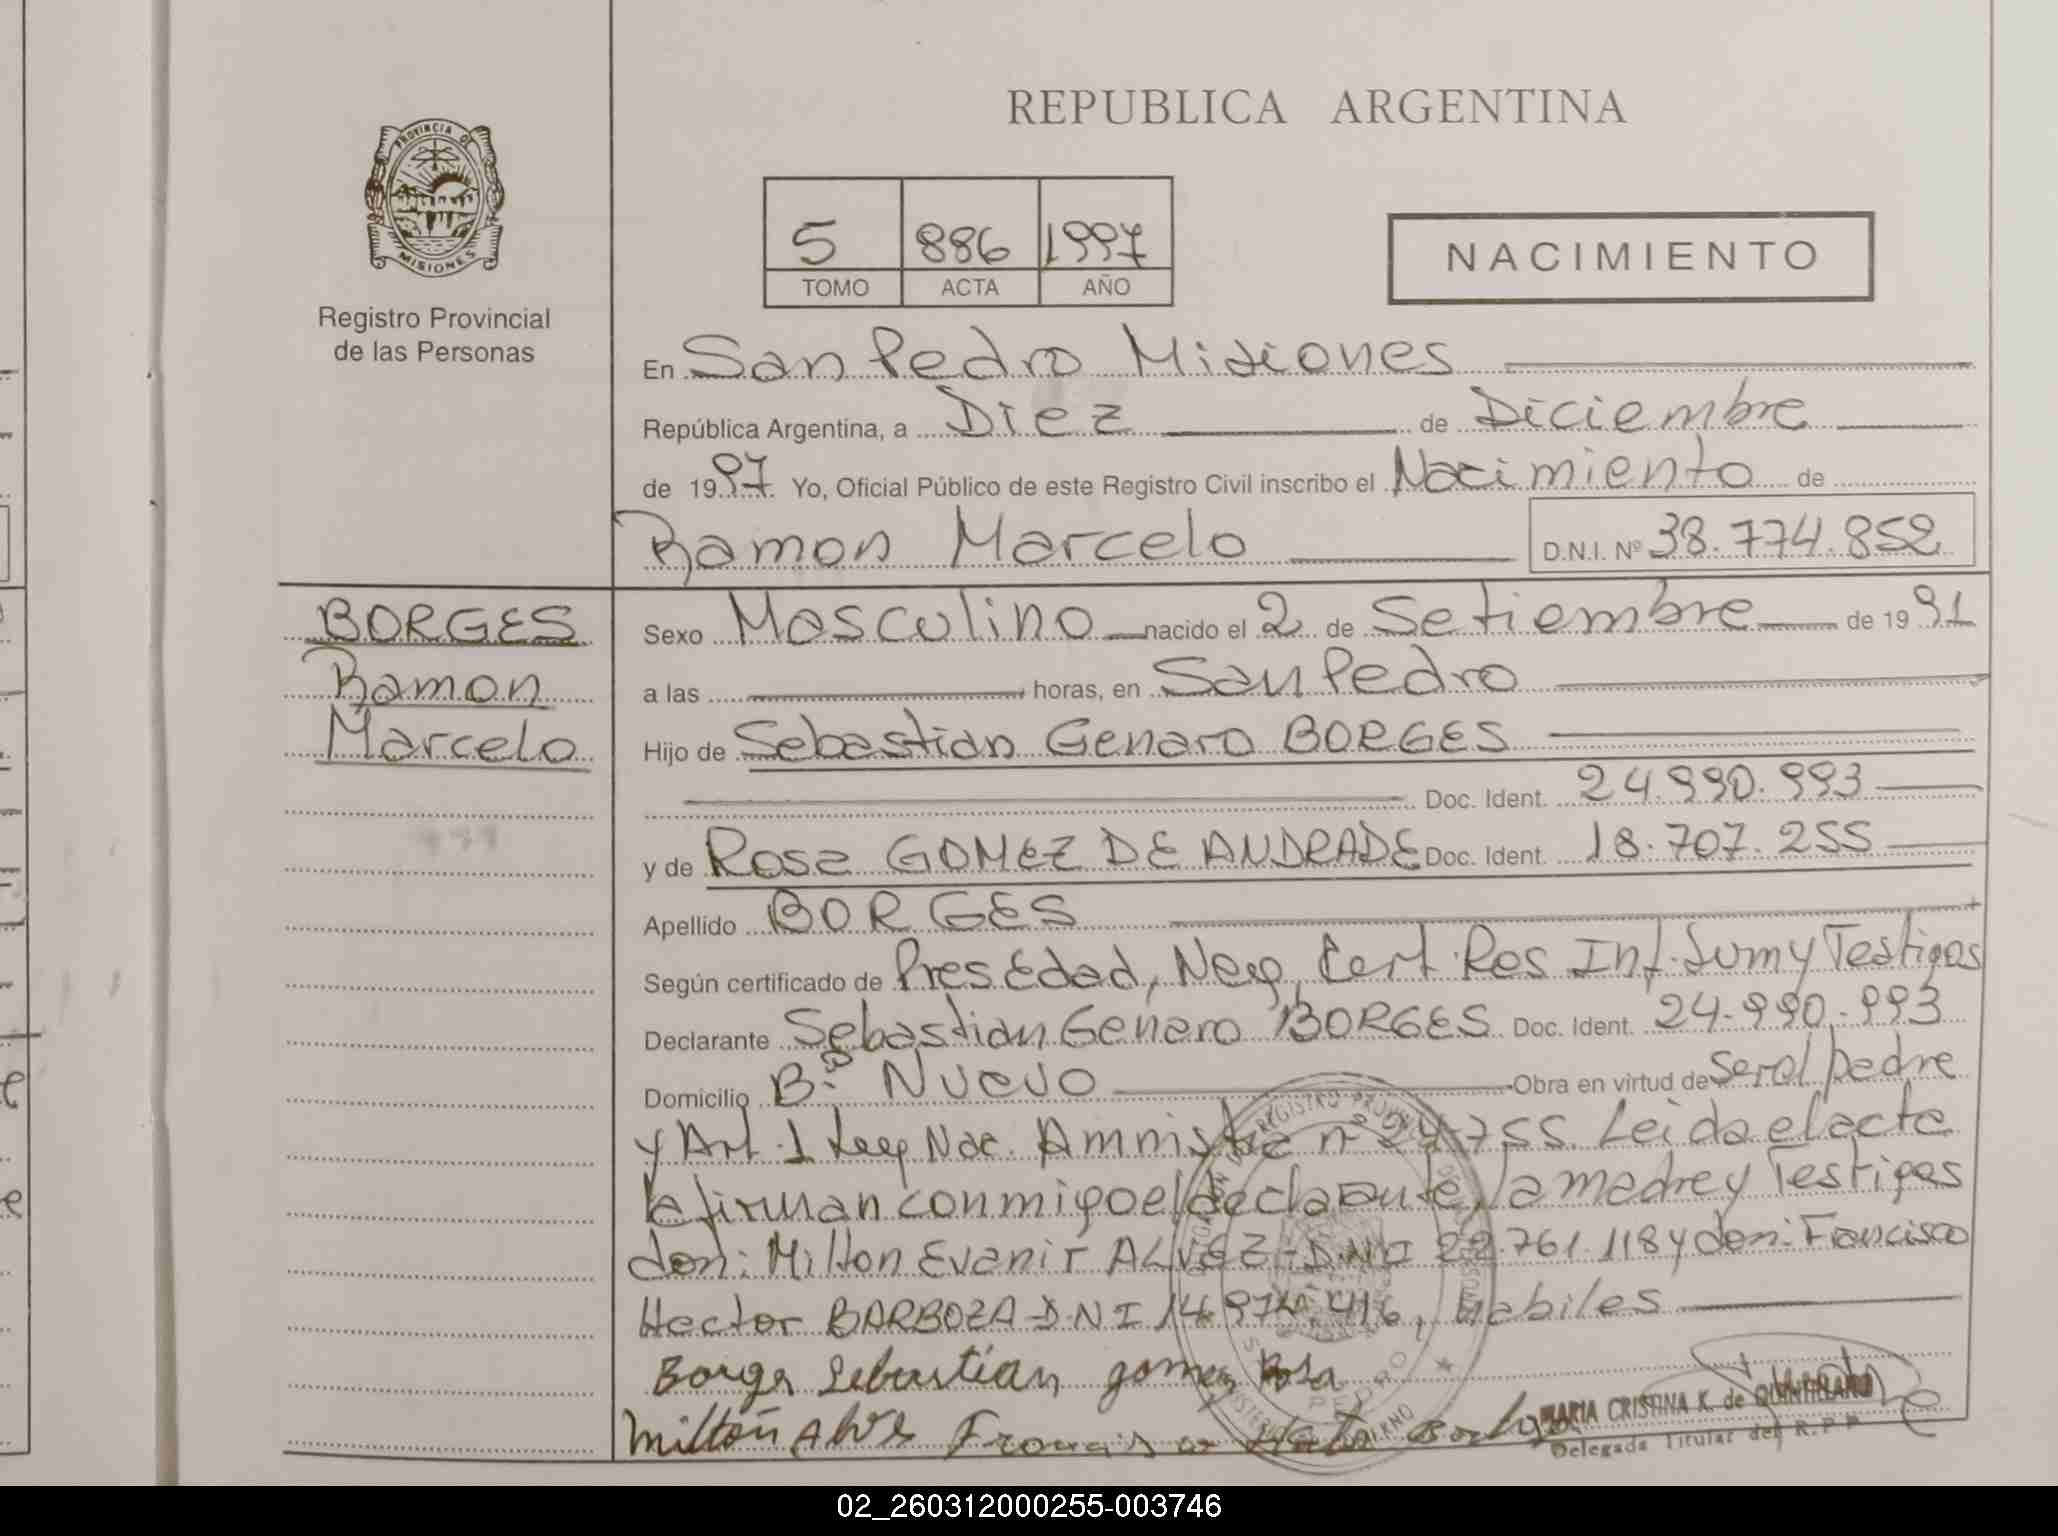 REPUBLICA ARGENTINA
PROVINCIA DE
MISIONES
Registro Provincial
de las Personas
5 886 1997
TOMO ACTA AÑO
NACIMIENTO
En San Pedro Misiones
República Argentina, a Diez de Diciembre
de 1997. Yo, Oficial Público de este Registro Civil inscribo el Nacimiento de
Ramon Marcelo D.N.I. Nº 38.774.852
BORGES
Ramon
Marcelo
Sexo Masculino nacido el 2 de Setiembre de 1991
a las horas, en San Pedro
Hijo de Sebastian Genaro BORGES
Doc. Ident. 24.990.993
y de Rosa GOMEZ DE ANDRADE Doc. Ident. 18.707.255
Apellido BORGES
Según certificado de Pres Edad, Neg, Cert. Res Inf. Sum y Testigos
Declarante Sebastian Genaro BORGES Doc. Ident. 24.990.993
Domicilio Bº Nuevo Obra en virtud de ser el padre
y Art. 1 Ley Nac. Amnistia nº 24.755. Leida el acta
la firman conmigo el declarante, la madre y Testigos
don: Milton Evanir ALVEZ - DNI 22.761.118 y don: Francisco
Hector BARBOZA DNI 14.974.416, Habiles
Borges Sebastian gomez Rosa
Milton Alves Francisco Hector
MARIA CRISTINA K. de QUINTRLANO
Delegada Titular del R.P.P
02_260312000255-003746